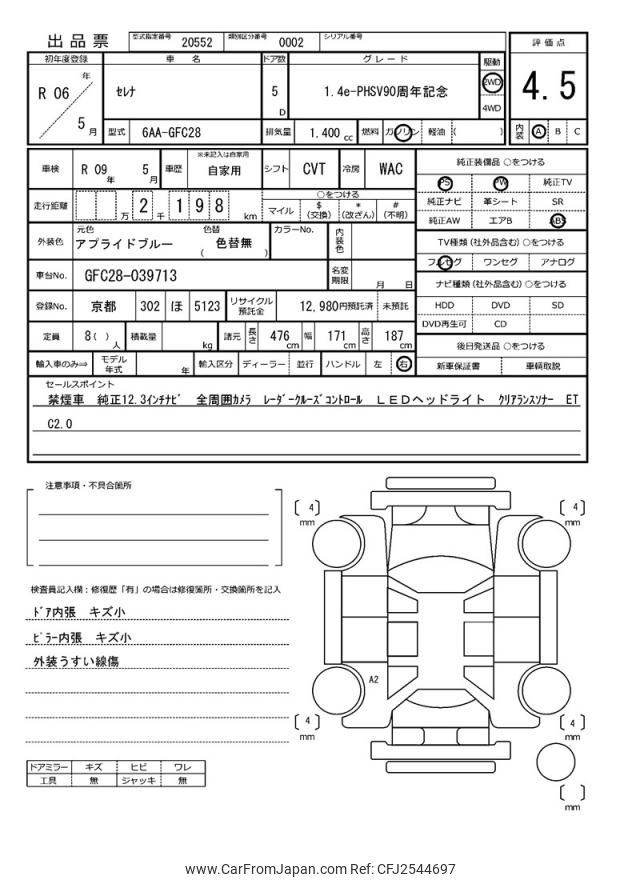 出品票 型式指定番号 20552 類別区分番号 0002 シリアル番号
初年度登録 車名 ドア数 グレード 駆動 評価点
R 06 年 5 月 セレナ 5 D 1.4e-PHSV90周年記念 2WD 4WD 4.5
型式 6AA-GFC28 排気量 1.400 cc 燃料 ガソリン 軽油 ( ) 内装 A B C
車検 R 09 年 5 月 車歴 ※未記入は自家用 自家用 シフト CVT 冷房 WAC
走行距離 万 2 千 1 9 8 km ○をつける
マイル $ (交換) * (改ざん) # (不明)
外装色 元色 アプライドブルー 色替 色替無 ( ) カラーNo. 内装色
車台No. GFC28-039713 名変期限 月 日
登録No. 京都 302 ほ 5123 リサイクル預託金 12,980円預託済 未預託
定員 8( ) 人 積載量 kg 諸元 長さ 476 cm 幅 171 cm 高さ 187 cm
輸入車のみ⇒ モデル年式 年 輸入区分 ディーラー 並行 ハンドル 左 右
純正装備品 ○をつける
PS PW 純正TV
純正ナビ 革シート SR
純正AW エアB ABS
TV種類 (社外品含む) ○をつける
フルセグ ワンセグ アナログ
ナビ種類 (社外品含む) ○をつける
HDD DVD SD
DVD再生可 CD
後日発送品 ○をつける
新車保証書 車輌取説
セールスポイント
禁煙車 純正12.3インチナビ 全周囲カメラ レーダークルーズコントロール LEDヘッドライト クリアランスソナー ET
C2.0
注意事項・不具合箇所
検査員記入欄：修復歴「有」の場合は修復箇所・交換箇所を記入
ドア内張 キズ小
ピラー内張 キズ小
外装うすい線傷
ドアミラー キズ ヒビ ワレ
工具 無 ジャッキ 無
[ 4 ] mm
[ 4 ] mm
A2
[ 4 ] mm
[ 4 ] mm
[ ] mm
www.CarFromJapan.com Ref: CFJ2544697